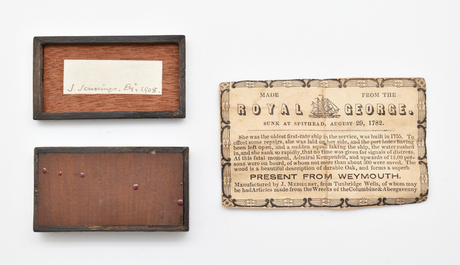 J. Jennings, Esq. 1908.
MADE FROM THE
ROYAL GEORGE.
SUNK AT SPITHEAD, AUGUST 29, 1782.
She was the oldest first-rate ship in the service, was built in 1755. To
effect some repairs, she was laid on her side, and the port holes having
been left open, and a sudden squall taking the ship, the water rushed
in, and she sank so rapidly, that no time was given for signals of distress.
At this fatal moment, Admiral Kempenfelt, and upwards of 11,00 per-
sons were on board, of whom not more than about 300 were saved. The
wood is a beautiful description of durable Oak, and forms a superb
PRESENT FROM WEYMOUTH.
Manufactured by J. MEDHURST, from Tunbridge Wells, of whom may
be had Articles made from the Wrecks of the Columbine & Abergavenny